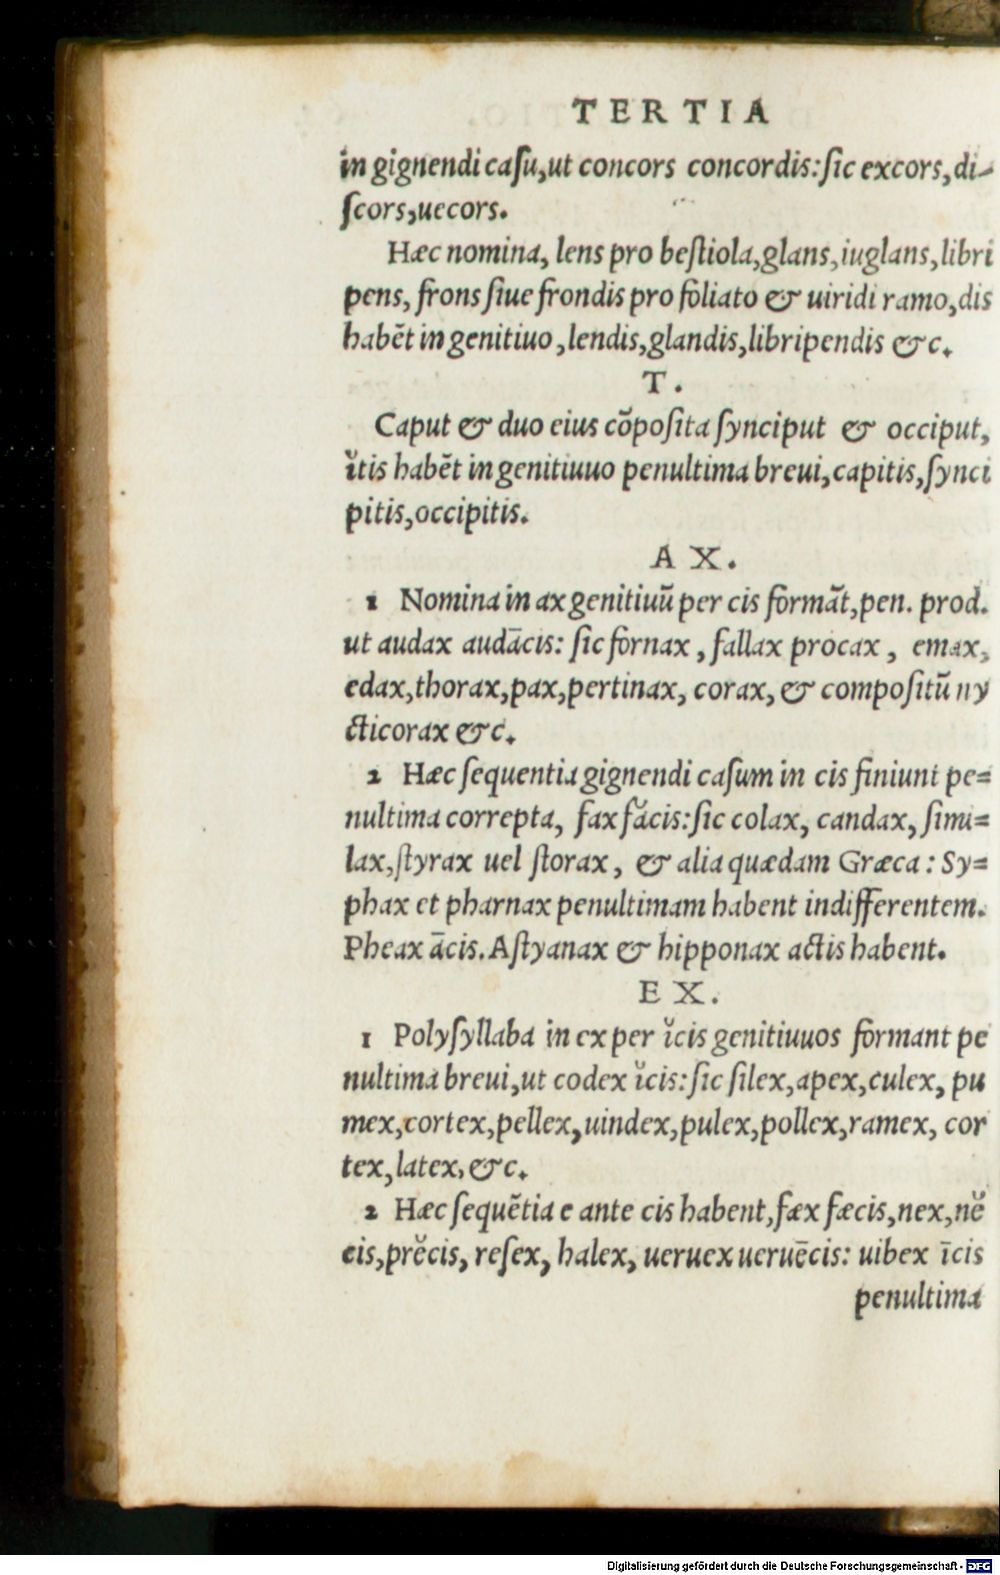 TERTIA
in gignendi caſu,ut concors concordis:ſic excors,di-
ſcors,uecors.
Hæc nomina, lens pro beſtiola,glans,iuglans,libri
pens, frons ſiue frondis pro foliato & uiridi ramo,dis
habēt in genitiuo,lendis,glandis,libripendis &c.
T.
Caput & duo eius cōpoſita ſynciput & occiput,
ĭtis habēt in genitiuuo penultima breui,capitis,ſynci
pitis,occipitis.
AX.
1 Nomina in ax genitiuū per cis formāt,pen. prod.
ut audax audācis: ſic fornax, fallax procax, emax,
edax,thorax,pax,pertinax, corax, & compoſitū ny
cticorax &c.
2 Hæc ſequentia gignendi caſum in cis finiunt pe=
nultima correpta, fax făcis:ſic colax, candax, ſimi=
lax,ſtyrax uel ſtorax, & alia quædam Græca: Sy=
phax et pharnax penultimam habent indifferentem.
Pheax ācis. Aſtyanax & hipponax actis habent.
EX.
1 Polyſyllaba in ex per ĭcis genitiuuos formant pe
nultima breui,ut codex ĭcis:ſic ſilex,apex,culex, pu
mex,cortex,pellex,uindex,pulex,pollex,ramex, cor
tex,latex,&c.
2 Hæc ſequētia e ante cis habent,fæx fæcis,nex,nĕ
cis,prĕcis, reſex, halex, ueruex ueruēcis: uibex īcis
penultima
Digitalisierung gefördert durch die Deutsche Forschungsgemeinschaft - DFG